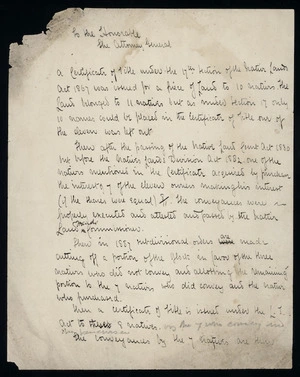 To the Honorable
The Attorney General
A Certificate of Title under the 17th section of the Native Lands
Act 1867 was issued for a piece of land to 10 natives. The
land belonged to 11 natives but as under section 17 only
10 names could be placed in the certificate of title one of
the eleven was left out
Then after the passing of the Native Land Court Act 1880
but before the Native Land Division Act 1882 one of the
natives mentioned in the certificate acquired by purchase
the interests of 7 of the eleven owners making his interest
(if the shares were equal) The conveyances were
properly executed and attested and passed by the Native
Land Commissioner.
Then in 1887 subdivisional orders are made
cutting off a portion of the block in favor of the three
natives who did not convey and allotting the remaining
portion to the 7 natives who did convey and the native
who purchased.
Then a certificate of Title is issued under the L.T.
Act to these 8 natives.
The conveyances by the 7 natives are